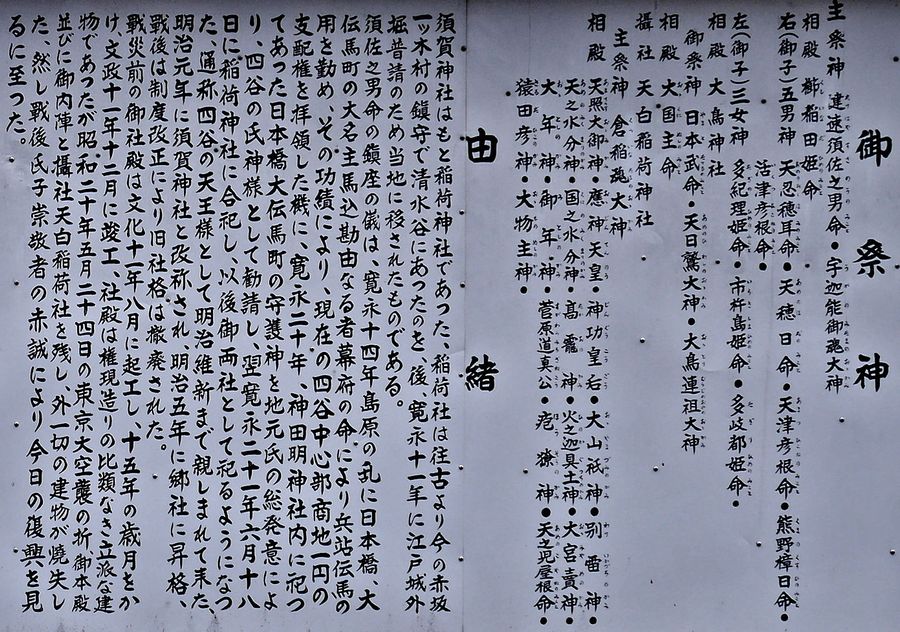 御祭神
主祭神 建速須佐之男命・宇迦能御魂大神
相殿 櫛稲田姫命
右(御子)五男神 天忍穂耳命・天穂日命・天津彦根命・熊野樟日命・
活津彦根命・
左(御子)三女神 多紀理姫命・市杵島姫命・多岐都姫命・
相殿 大鳥神社
御祭神 日本武命・天日鷲大神・大鳥連祖大神
相殿 大国主命
攝社 天白稲荷神社
主祭神 倉稲魂大神
相殿 天照大御神・應神天皇・神功皇后・大山祇神・別雷神・
天之水分神・国之水分神・高龗神・火之迦具土神・大宮賣神・
大年神・御年神・菅原道真公・疱瘡神・天児屋根命・
猿田彦神・大物主神・
由緒
須賀神社はもと稲荷神社であった、稲荷社は往古より今の赤坂
一ッ木村の鎮守で清水谷にあったのを、後、寛永十一年に江戸城外
堀普請のため当地に移されたものである。
須佐之男命の鎮座の儀は、寛永十四年島原の乱に日本橋、大
伝馬町の大名主馬込勘由なる者幕府の命により兵站伝馬の
用を勤め、その功績により、現在の四谷中心部商地一円の
支配権を拝領した機に、寛永二十年、神田明神社内に祀つ
てあった日本橋大伝馬町の守護神を地元氏の総発意によ
り、四谷の氏神様として勧請し、翌寛永二十一年六月十八
日に稲荷神社に合祀し、以後御両社として祀るようになつ
た、通称四谷の天王様として明治維新まで親しまれて来た、
明治元年に須賀神社と改称され、明治五年に郷社に昇格、
戦後は制度改正により旧社格は撤廃された。
戦災前の御社殿は文化十年八月に起工し、十五年の歳月をか
け、文政十一年十二月に竣工、社殿は権現造りの比類なき立派な建
物であったが昭和二十年五月二十四日の東京大空襲の折、御本殿
並びに御内陣と攝社天白稲荷社を残し、外一切の建物が焼失し
た、然し戦後氏子崇敬者の赤誠により今日の復興を見
るに至つた。